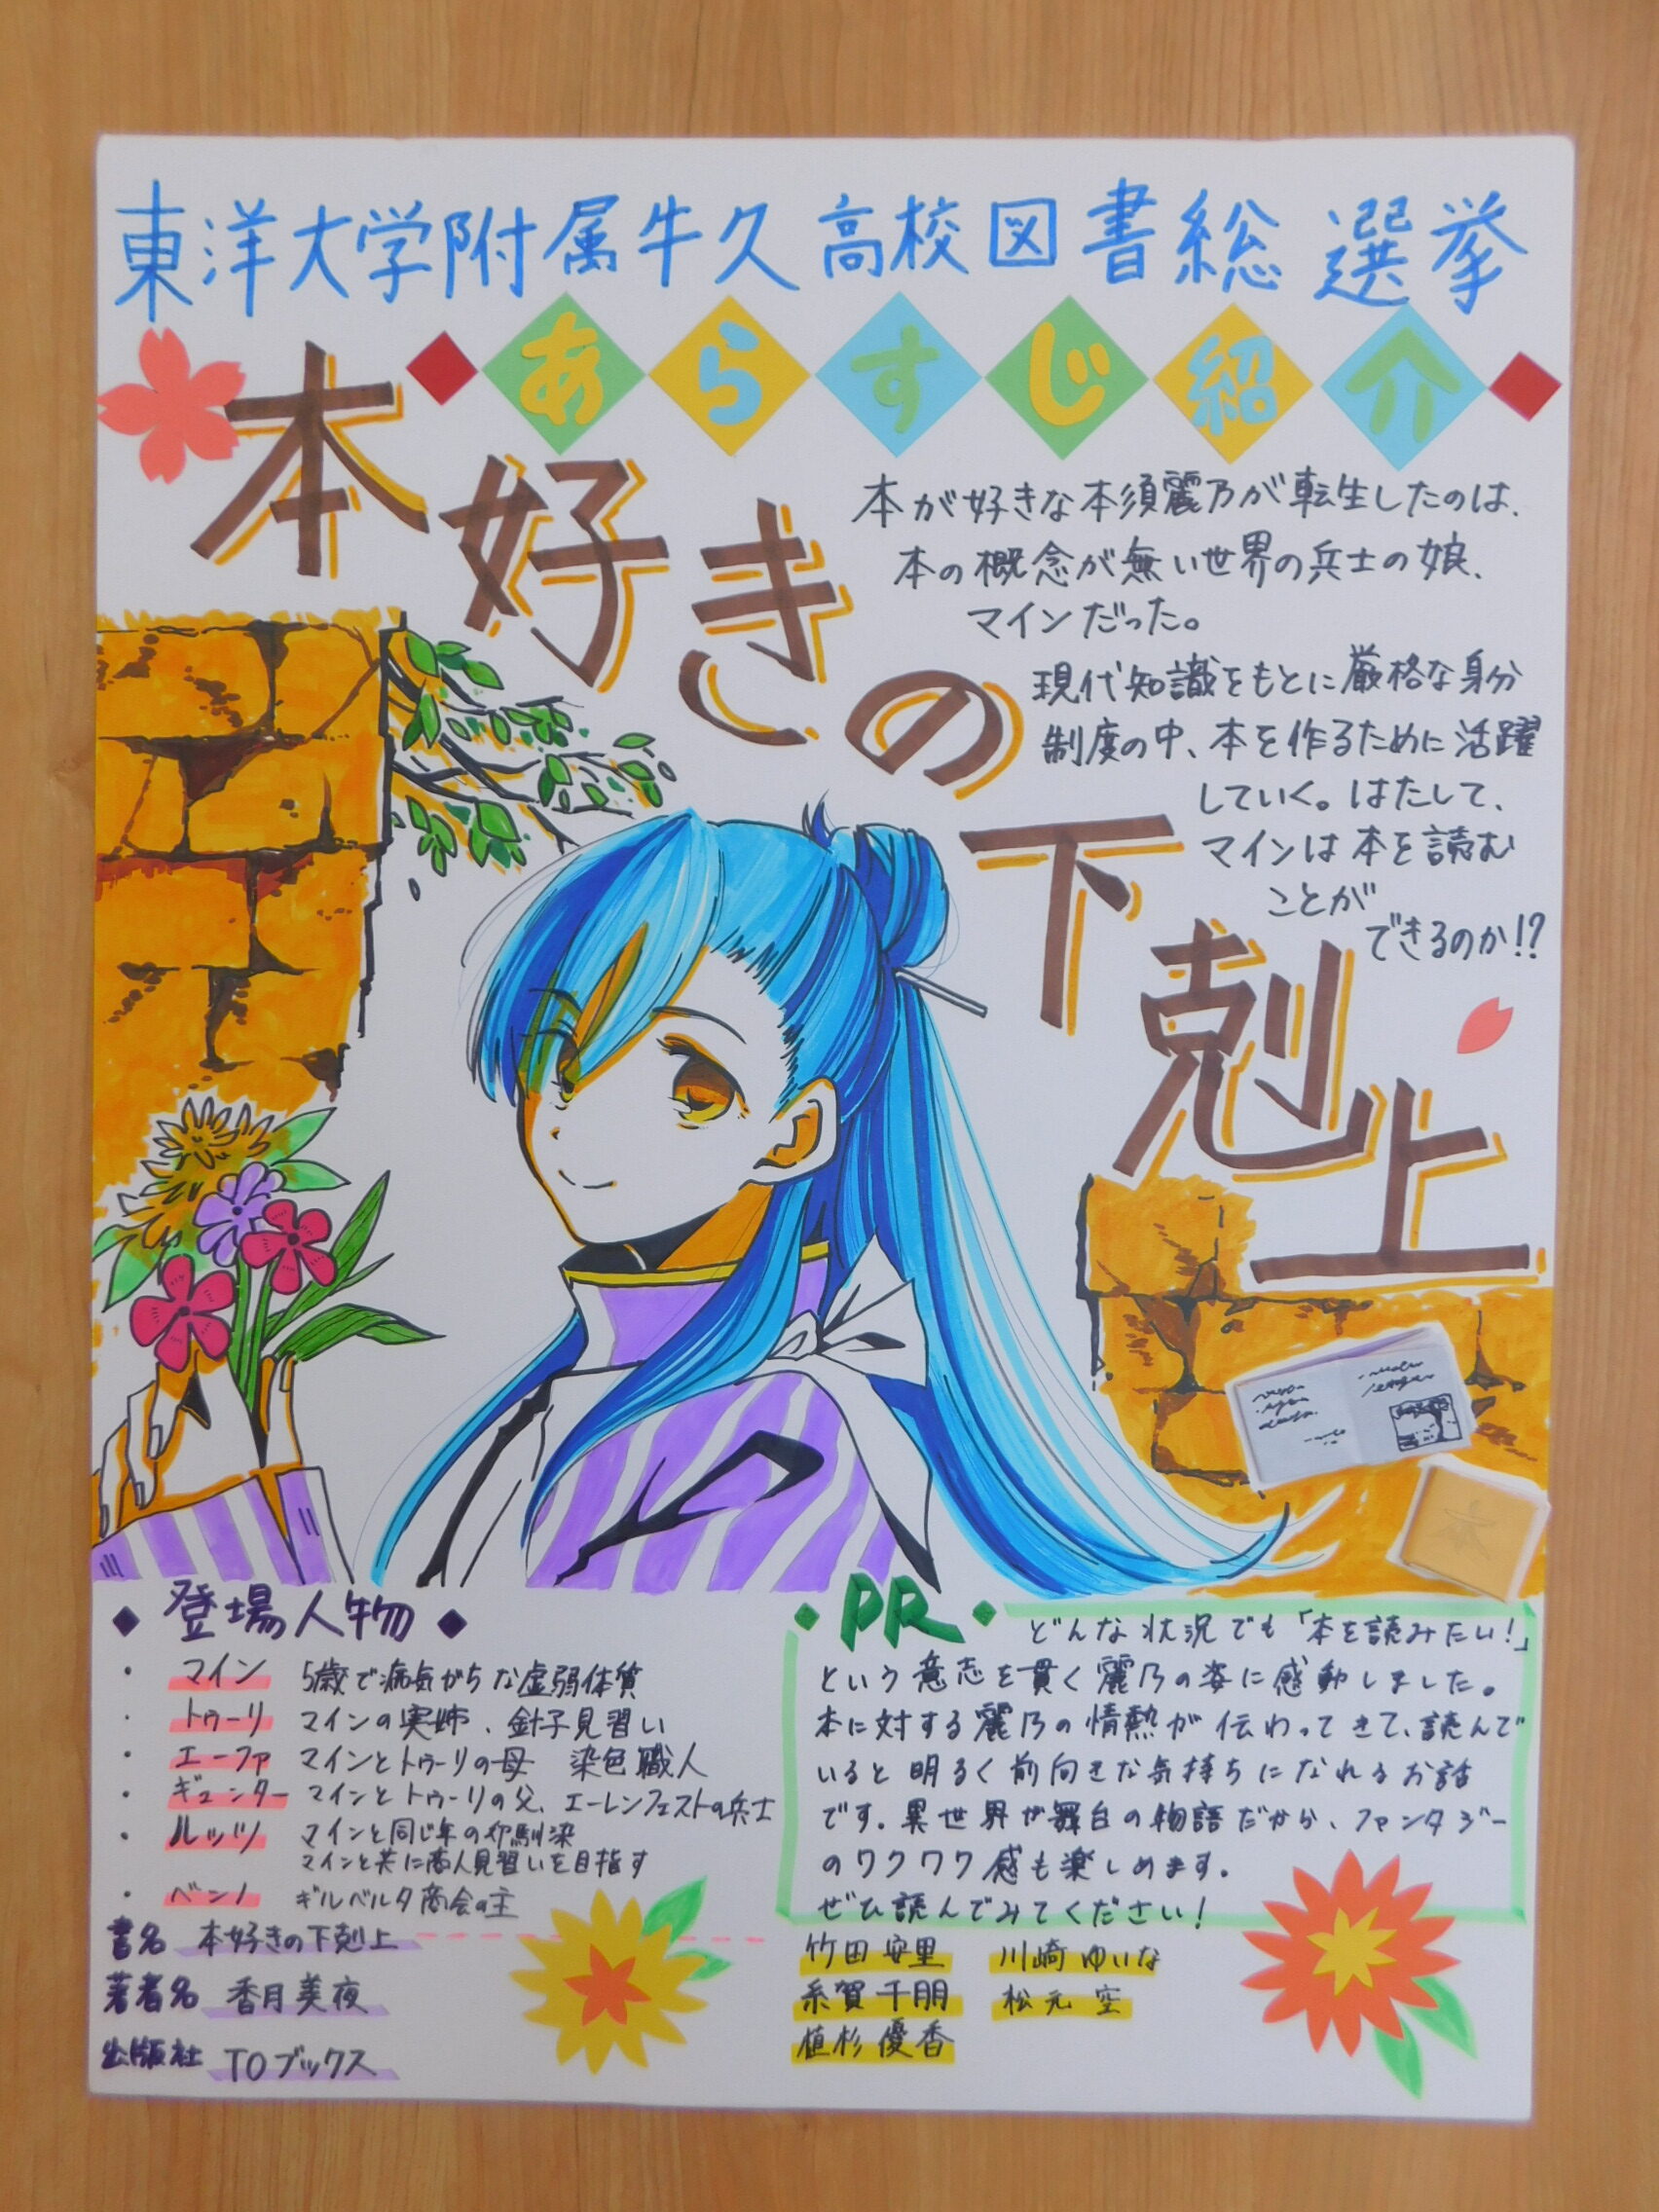 東洋大学附属牛久高校図書総選挙
あらすじ紹介
本好きの下剋上
本が好きな本須麗乃が転生したのは、
本の概念が無い世界の兵士の娘、
マインだった。
現代知識をもとに厳格な身分
制度の中、本を作るために活躍
していく。はたして、
マインは本を読む
ことが
できるのか!?
登場人物
・マイン 5歳で病気がちな虚弱体質
・トゥーリ マインの実姉、針子見習い
・エーファ マインとトゥーリの母 染色職人
・ギュンター マインとトゥーリの父、エーレンフェストの兵士
・ルッツ マインと同じ年の幼馴染
マインと共に商人見習いを目指す
・ベンノ ギルベルタ商会の主
書名 本好きの下剋上
著者名 香月美夜
出版社 TOブックス
・PR・
どんな状況でも「本を読みたい!」
という意志を貫く麗乃の姿に感動しました。
本に対する麗乃の情熱が伝わってきて、読んで
いると明るく前向きな気持ちになれるお話
です。異世界が舞台の物語だから、ファンタジー
のワクワク感も楽しめます。
ぜひ読んでみてください!
竹田 安里 川崎 ゆいな
糸賀 千朋 松元 空
植杉 優香